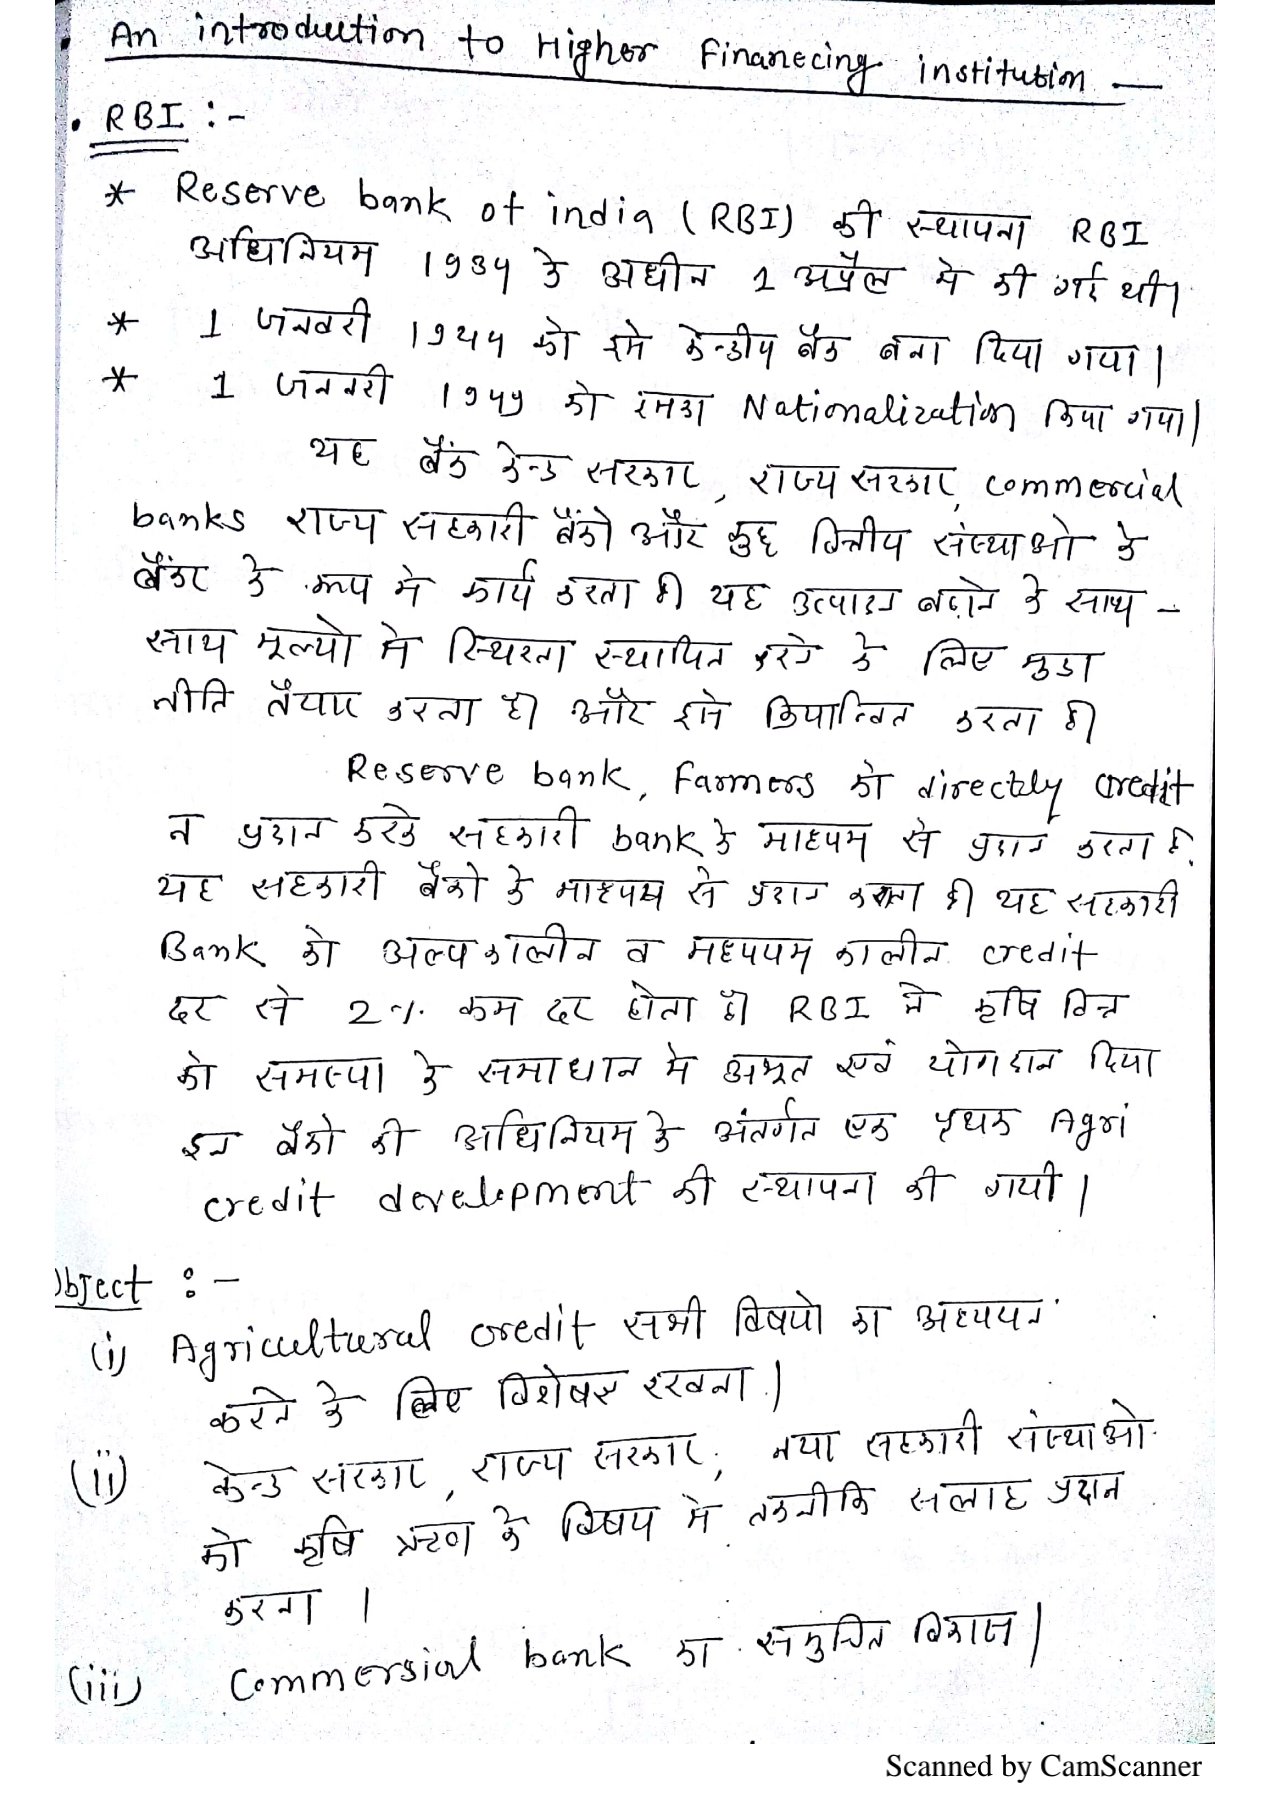 An introduction to Higher Financing institution —
RBI :-
* Reserve bank of india (RBI) की स्थापना RBI
अधिनियम 1934 के अधीन 1 अप्रैल मे की गई थी।
* 1 जनवरी को इसे केन्द्रीय बैंक बना दिया गया।
* 1 जनवरी 1949 को इसका Nationalization किया गया।
यह बैंक केन्द्र सरकार, राज्य सरकार, commercial
banks राज्य सहकारी बैंको और कुछ वित्तीय संस्थाओ के
बैंकर के रूप मे कार्य करता है। यह उत्पादन बढ़ाने के साथ -
साथ मूल्यो मे स्थिरता स्थापित करने के लिए मुद्रा
नीति तैयार करता है। और इसे क्रियान्वित करता है।
Reserve bank, Farmers को directly credit
न प्रदान करके सहकारी bank के माध्यम से प्रदान करता है.
यह सहकारी बैंको के माध्यम से प्रदान करता है। यह सहकारी
Bank को अल्पकालीन व मध्ययम कालीन credit
दर से 2% कम दर होता है। RBI ने कृषि वित्त
को समस्या के समाधान मे एवं योगदान दिया
इन बैंको की अधिनियम के अंतर्गत एक पृथक Agri
credit development की स्थापना की गयी।
Object :-
(i) Agricultural credit सभी विषयो का अध्ययन
करने के लिए विशेषज्ञ रखना।
(ii) केन्द्र सरकार, राज्य सरकार, तथा सहकारी संस्थाओ
को कृषि ऋण के विषय मे तकनीकि सलाह प्रदान
करना।
(iii) Commersial bank का समुचित विकास।
Scanned by CamScanner